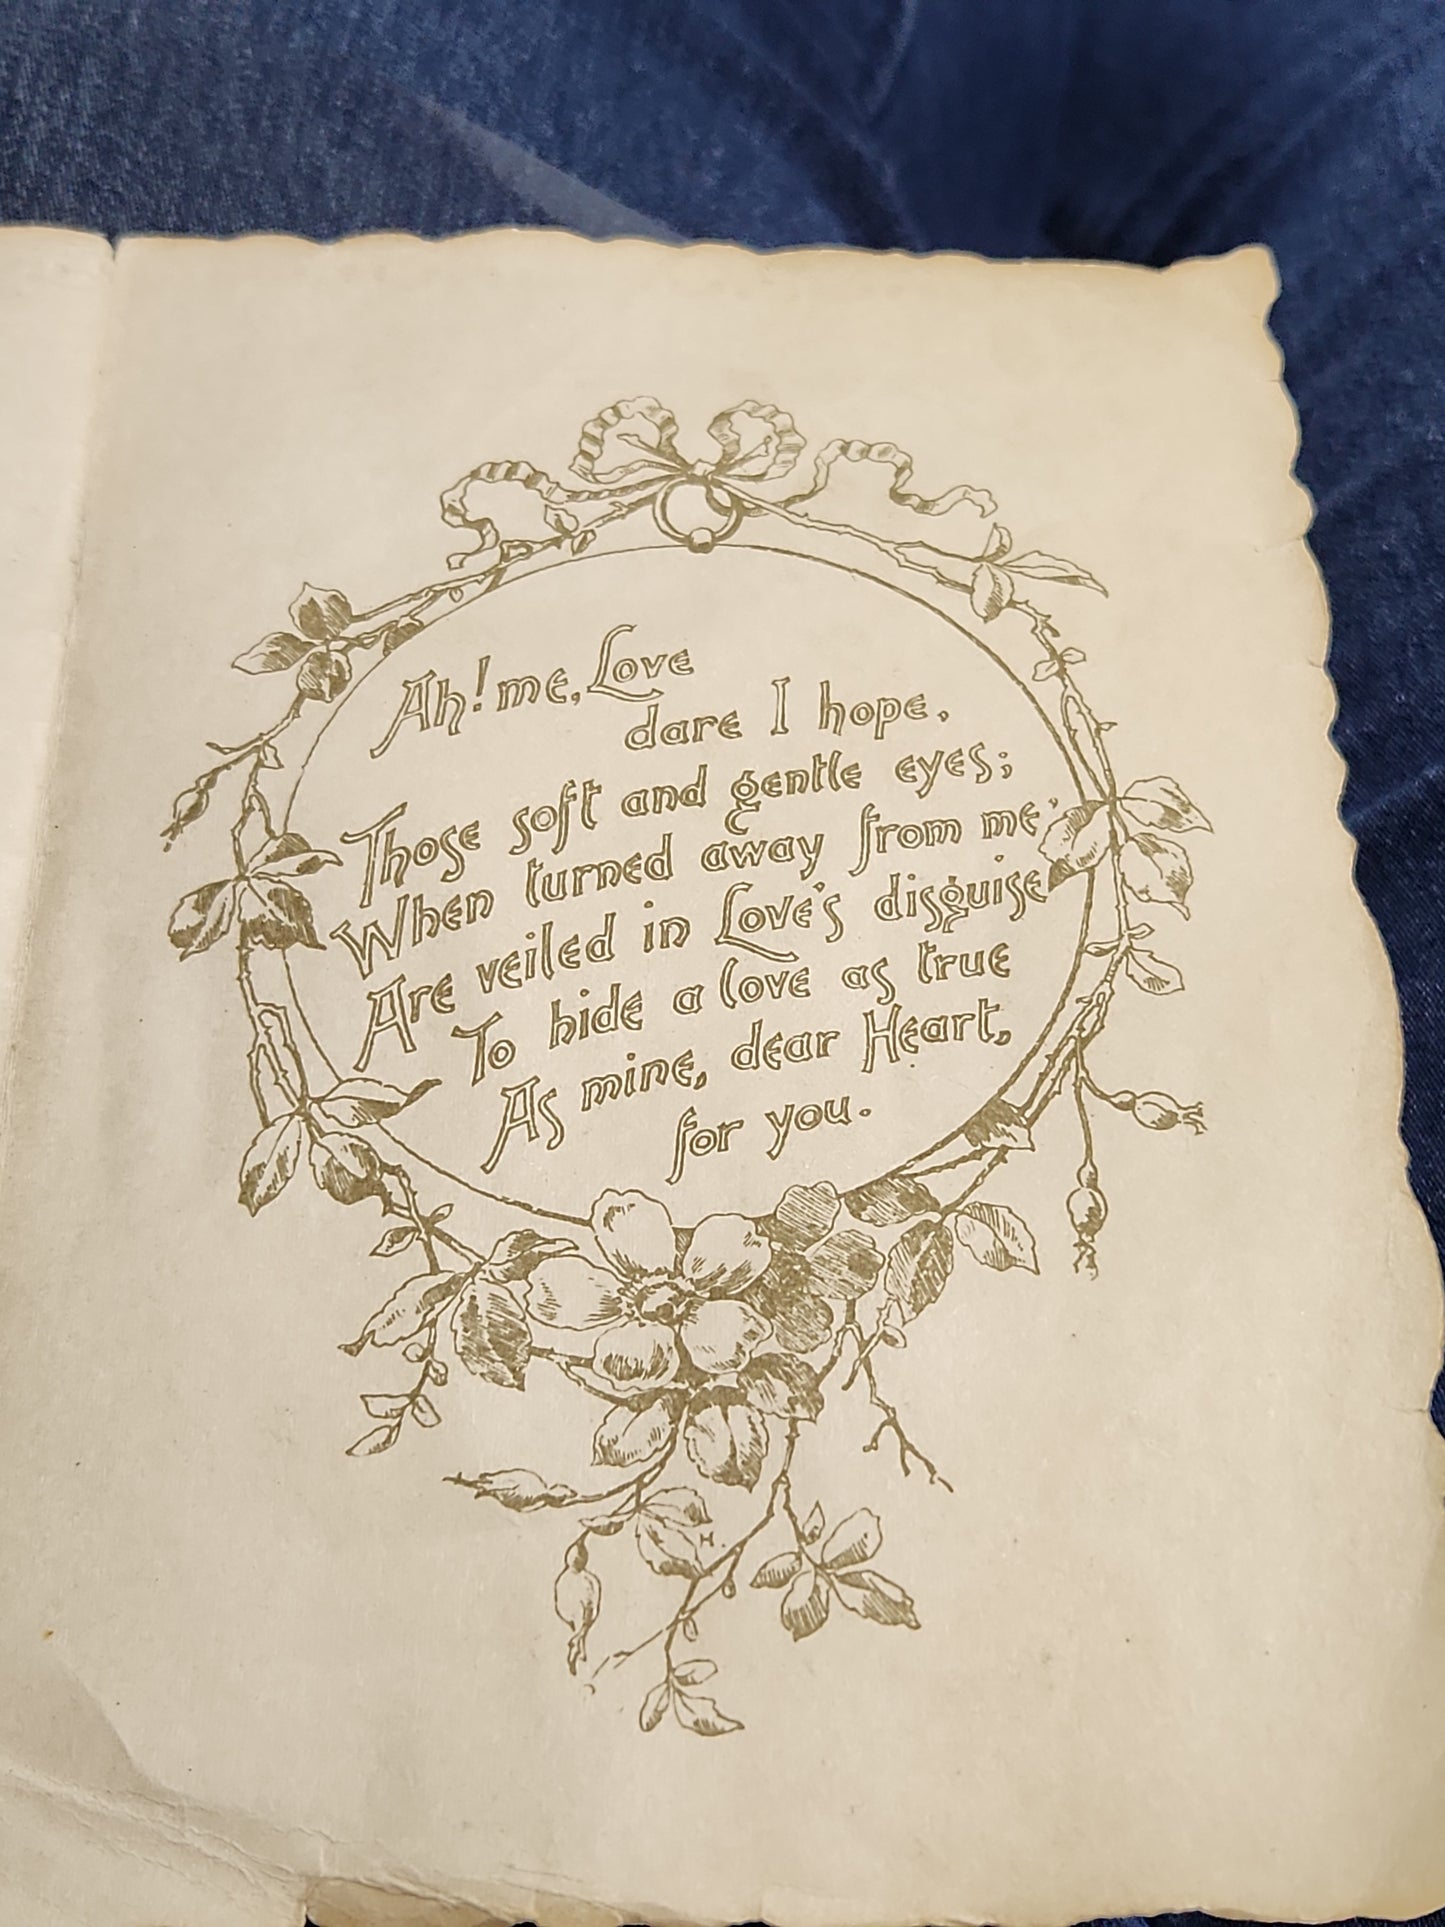 Ah! me, Love
dare I hope,
Those soft and gentle eyes;
When turned away from me,
Are veiled in Love's disguise
To hide a love as true
As mine, dear Heart,
for you.
H.